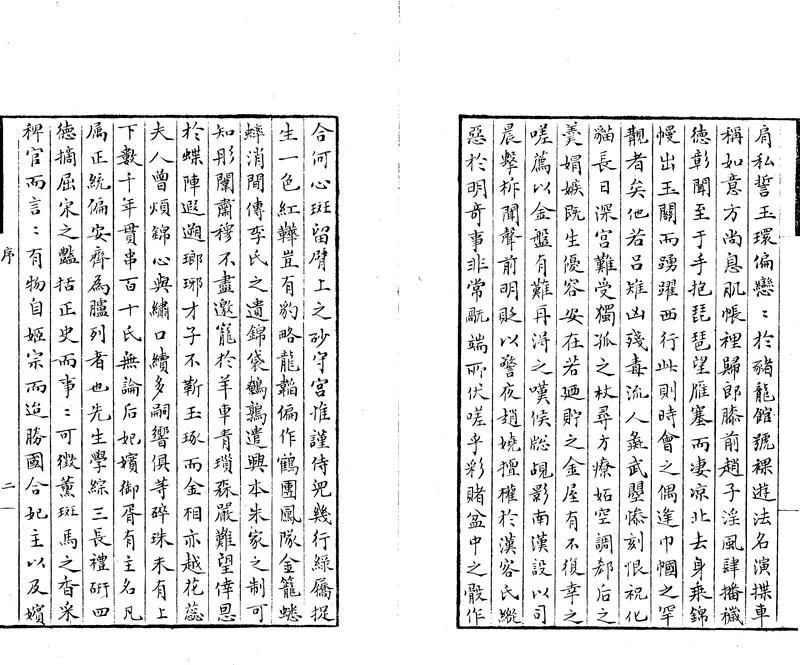 肩私誓玉環偏戀〻於豬龍館號裸遊法名演揲車
稱如意方尚息肌帳裡歸郎膝前趙子淫風肆播穢
德彰聞至于手抱琵琶望雁塞而淒凉北去身乘錦
幔出玉關而踴躍西行此則時會之偶逢巾幗之罕
覯者矣他若呂雉凶殘毒流人彘武曌慘刻恨祝化
貓長日深宮難受獨孤之杖尋方療妬空調郗后之
羹媢嫉既生優容安在若廼貯之金屋有不復幸之
嗟薦以金盤有難再淂之嘆候牕覘影南漢設以司
晨擊柝聞聲前明貶以警夜趙嬈擅權於漢客氏縱
惡於明奇事非常旤端所伏嗟乎彩賭盆中之骰作
合何心斑留臂上之砂守宮惟謹侍兒幾行綠鷹捉
生一色紅韡豈有豹略龍韜偏作鶴團鳳隊金籠蟋
蟀消閒傳李氏之遺錦袋鵪鶉遣興本朱家之制可
知彤闈肅穆不盡邀寵於羊車青瑣森嚴難望倖恩
於蝶陣遐遡瑯琊才子不靳玉琢而金相亦越花蕊
夫人曾煩錦心與繡口續多嗣響俱等碎珠未有上
下數千年貫串百十氏無論后妃嬪御胥有主名凡
属正統偏安齊為臚列者也先生學綜三長禮衍四
德摛屈宋之豔括正史而事〻可徵薰斑馬之香采
稗官而言〻有物自姬宗而迄勝國合妃主以及嬪
序
二